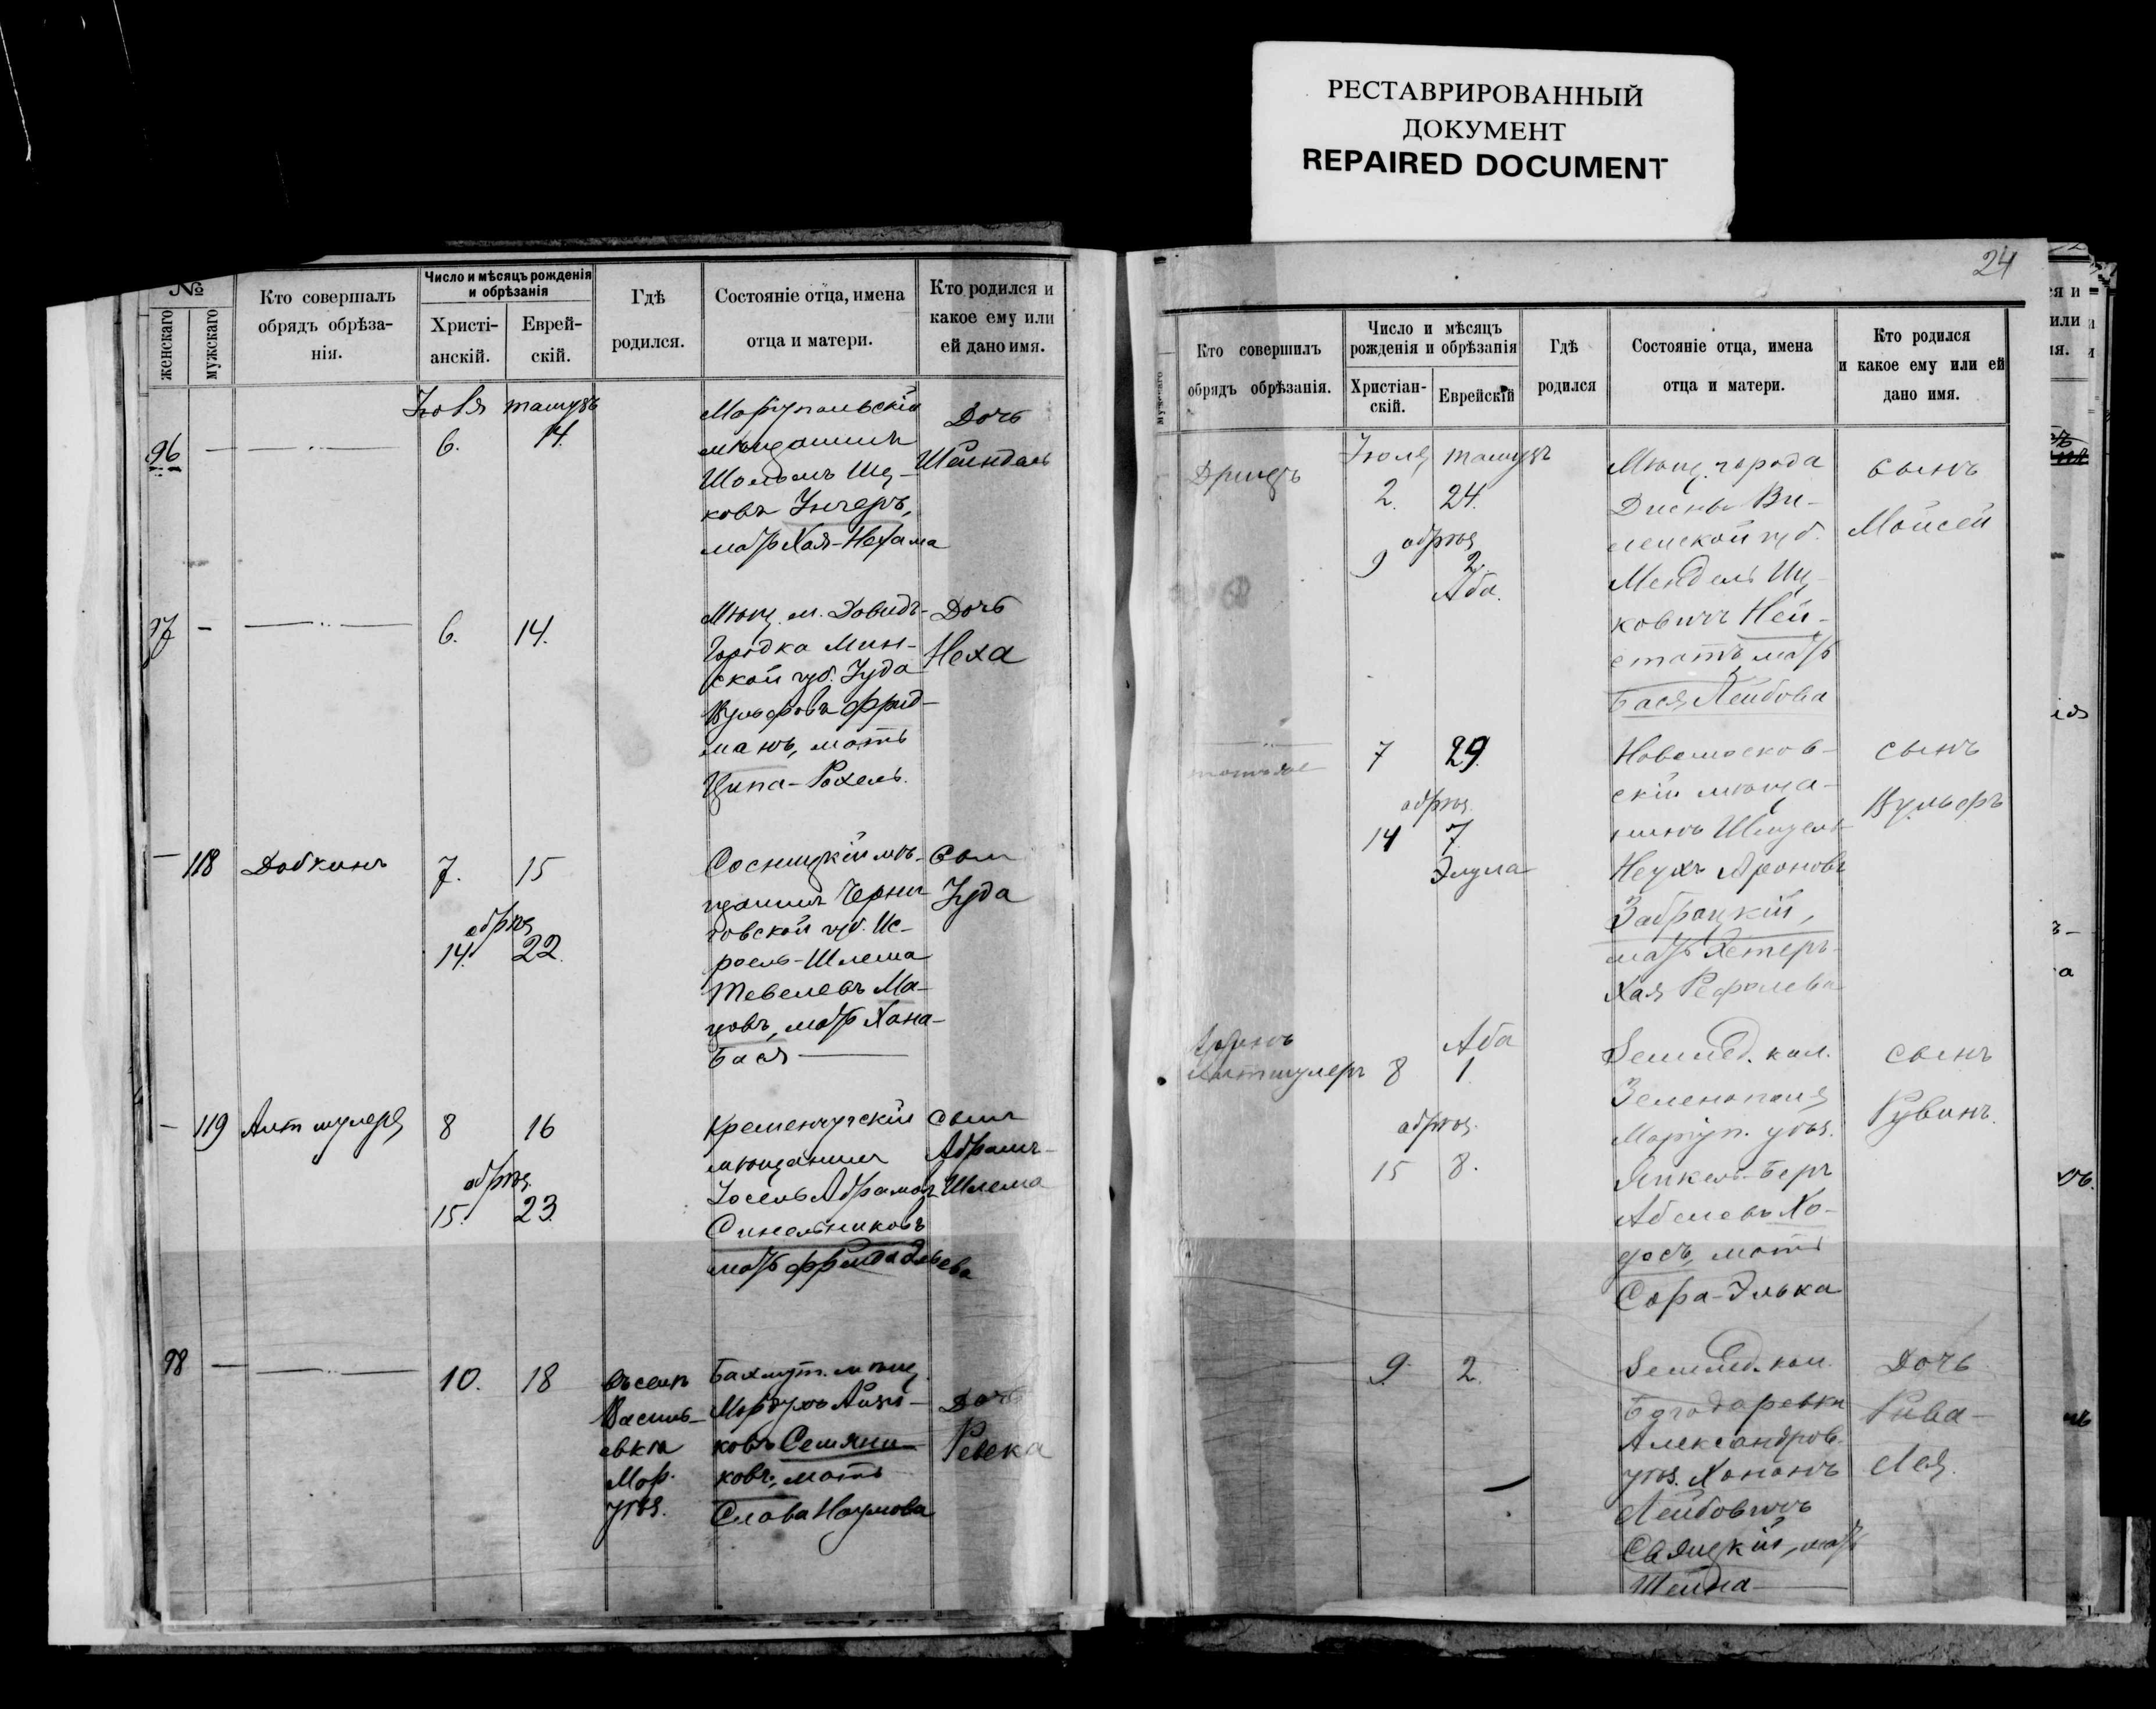 РЕСТАВРИРОВАННЫЙ
ДОКУМЕНТ
REPAIRED DOCUMENT
№
женскаго
мужскаго
Кто совершалъ
обрядъ обрѣза-
нія.
Число и мѣсяцъ рожденія
и обрѣзанія
Христі-
анскій.
Еврей-
скій.
Гдѣ
родился.
Состояніе отца, имена
отца и матери.
Кто родился и
какое ему или
ей дано имя.
96
6.
14.
Маріупольскій
мѣщанинъ
ковъ
мать Хая-Нехама
Дочь
Шейндель
97
6.
14.
Мѣщ. м. Давидъ-
Городка Мин-
ской губ. Іуда
Вульфовъ Фрид-
манъ, мать
Ципа-Рохель.
Дочь
Неха
118
Добкинъ
7.
15
обрѣз.
14.
22.
Сосницкій мѣ-
щанинъ Черни-
говской губ. Ис-
роель-Шлема
Тевелевъ Ма-
мать Хана-
Бася
Сынъ
Іуда
119
Альтшулеръ
8
16
обрѣз.
15.
23.
Кременчугскій
мѣщанинъ
Іосель Абрамовъ
Синельниковъ
мать
Сынъ
Абрамъ-
Шлема
98
10.
18
Въ селѣ
Василь-
евкѣ
Мар.
уѣз.
Бахмут. мѣщ.
Мордухъ Айзи-
ковъ Семяни-
ковъ, мать
Слава Наумова
Дочь
Ревека
24
мужскаго
Кто совершилъ
обрядъ обрѣзанія.
Число и мѣсяцъ
рожденія и обрѣзанія
Христіан-
скій.
Еврейскій
Гдѣ
родился
Состояніе отца, имена
отца и матери.
Кто родился
и какое ему или ей
дано имя.
Іюля
тамузъ
2.
24.
обрѣз.
9
2.
Аба.
Мѣщ. города
Дисны Ви-
ленской губ.
Мендель Иц-
ковичъ Ней-
штатъ мать
Бася Лейбова
сынъ
Мойсей
7
29.
обрѣз.
14
7.
Элула
Новомосков-
скій мѣща-
нинъ
Ароновъ
мать Естеръ-
Хая Рефолева
сынъ
Вульфъ
Альтшулеръ
8
Аба
1.
обрѣз.
15
8.
Землед. кол.
Зеленополя
Маріуп. уѣз.
Янкель-Беръ
Абелевъ
мать
Сора-Элька
сынъ
Рувинъ.
9.
2.
Землед. кол.
Александров.
уѣз. Хононъ
Лейбовичъ
Святцкій, мать
Шейна
Дочь
Рива-
Лея.